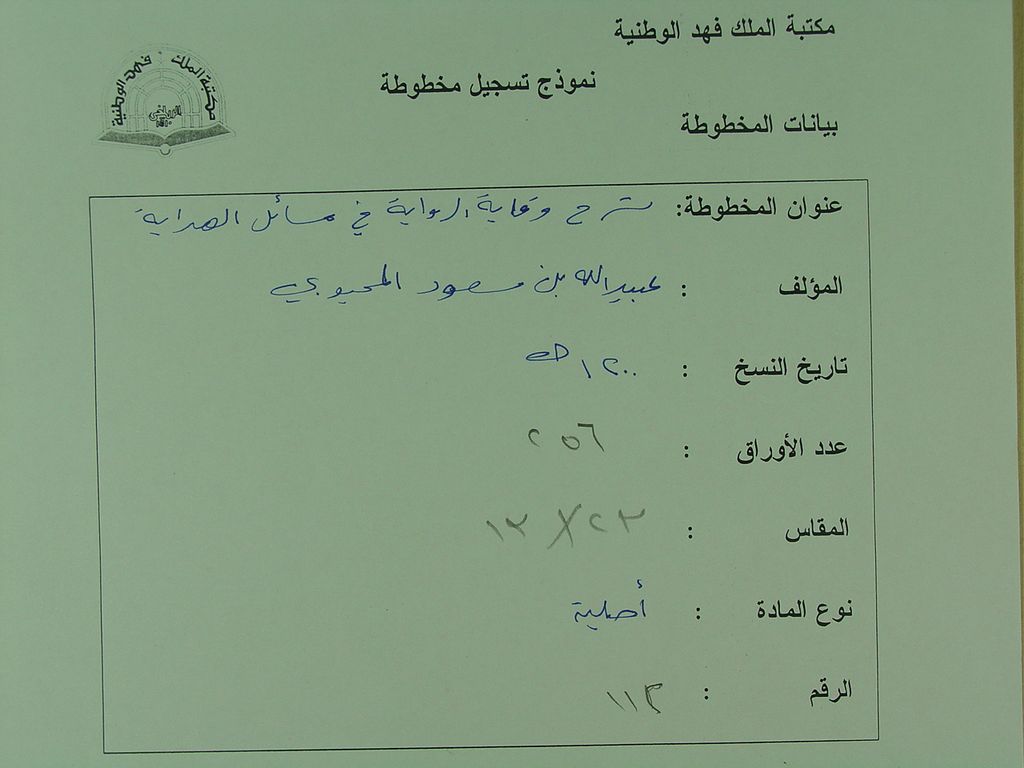 مكتبة الملك فهد الوطنية
مكتبة الملك فهد الوطنية
الرياض
نموذج تسجيل مخطوطة
بيانات المخطوطة
عنوان المخطوطة: شرح وقاية الرواية في مسائل الهداية
المؤلف : عبيدالله بن مسعود المحبوبي
تاريخ النسخ : ١٢٠٠ هـ
عدد الأوراق : ٢٥٦
المقاس : ٢٣ × ١٣
نوع المادة : أصلية
الرقم : ١١٣